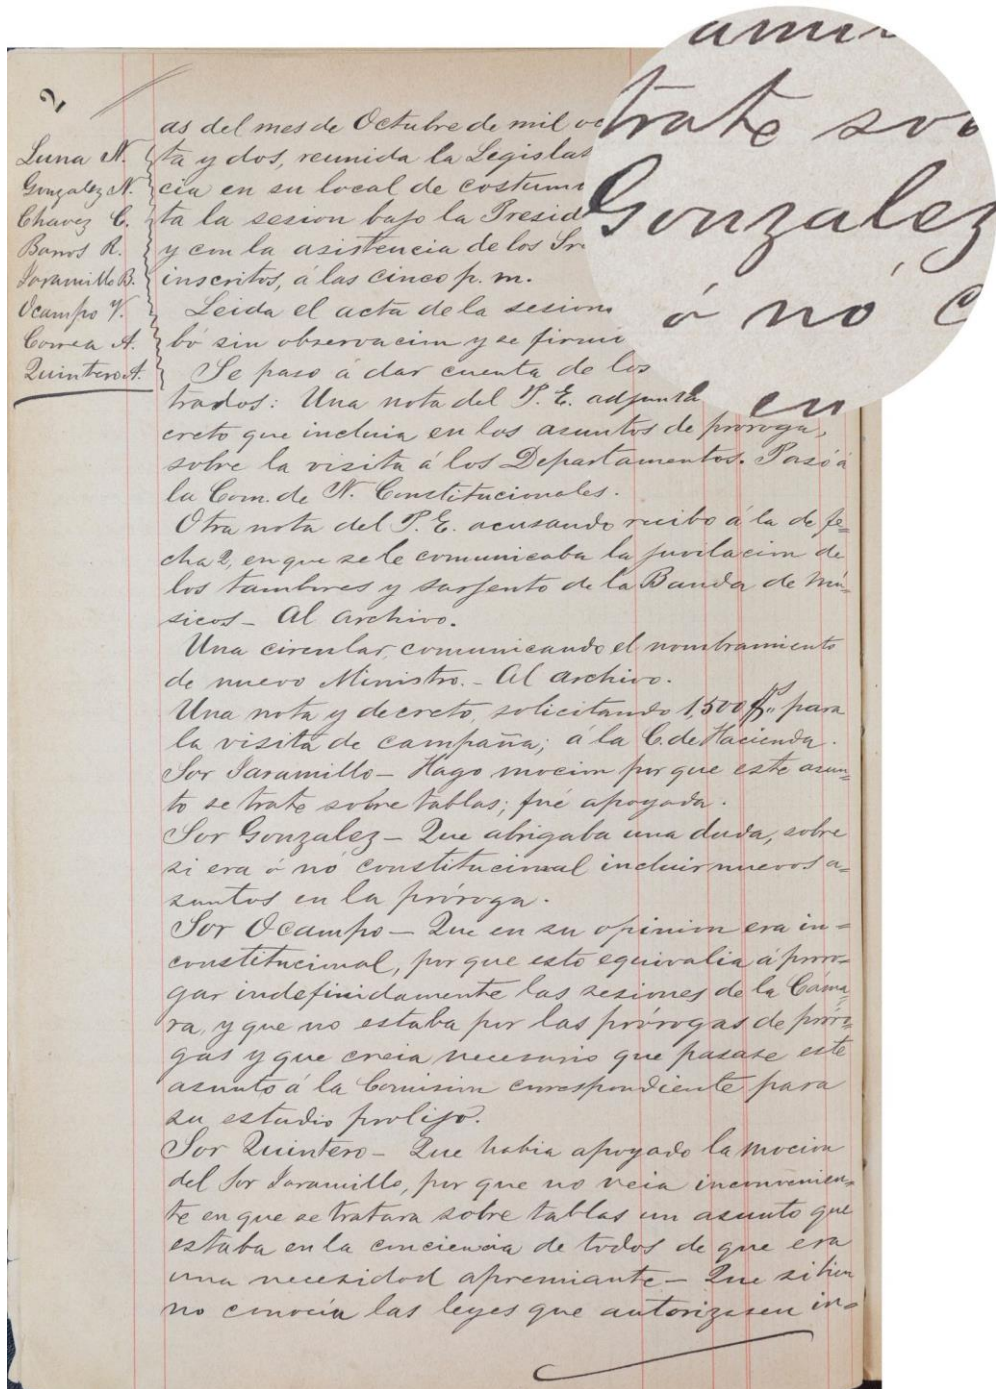 2
Luna N.
Gonzalez N.
Chavez C.
Barros R.
Jaramillo B.
Ocampo V.
Correa A.
Quintero A.
as del mes de Octubre de mil oc
ta y dos, reunida la Legislat
cia en su local de costum
ta la sesion bajo la Presid
y con la asistencia de los Sr
inscritos, á las cinco p. m.
Leida el acta de la sesion
bó sin observacion y se firmó
Se paso á dar cuenta de los
trados: Una nota del P. E. adjunta
creto que incluia en los asuntos de próroga,
sobre la visita á los Departamentos. Pasó á
la Com. de N. Constitucionales.
Otra nota del P. E. acusando recibo á la de fe=
cha 2, en que se le comunicaba la juvilacion de
los tambores y sarjento de la Banda de Mú=
sicos - Al archivo.
Una circular, comunicando el nombramiento
de nuevo Ministro. - Al archivo.
Una nota y decreto, solicitando 1,500 para
la visita de campaña; á la C. de Hacienda.
Sor Jaramillo - Hago mocion por que este asun=
to se trate sobre tablas; fué apoyada.
Sor Gonzalez - Que abrigaba una duda, sobre
si era ó nó constitucional incluir nuevos a=
suntos en la próroga.
Sor Ocampo - Que en su opinion era in=
constitucional, por que esto equivalia á proro=
gar indefinidamente las sesiones de la Cáma=
ra, y que no estaba por las prórogas de próro=
gas y que creia necesario que pasase este
asunto á la Comision correspondiente para
su estudio prolijo.
Sor Quintero - Que habia apoyado la mocion
del Sor Jaramillo, por que no veia inconvenien=
te en que se tratara sobre tablas un asunto que
estaba en la conciencia de todos de que era
una necesidad apremiante - Que si bien
no conocia las leyes que autorizasen in=
trate so
Gonzalez
ó nó c
en